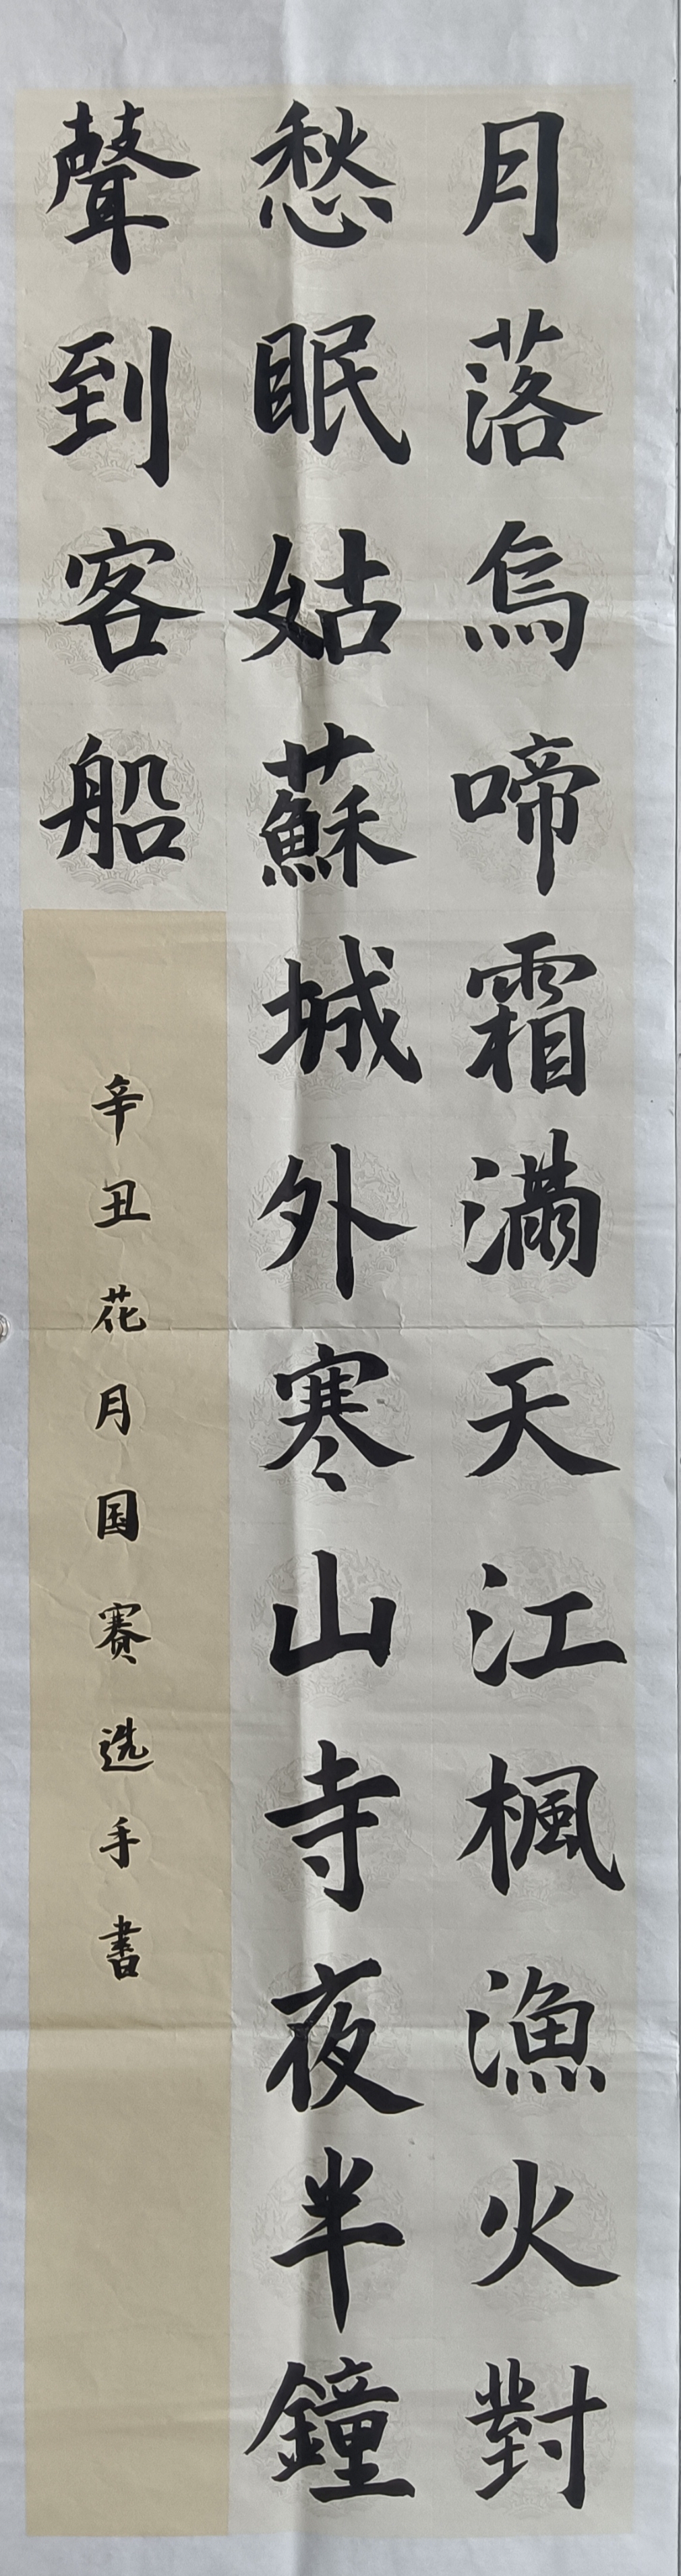 月落烏啼霜滿天江楓漁火對
愁眠姑蘇城外寒山寺夜半鐘
聲到客船
辛丑花月国赛选手書